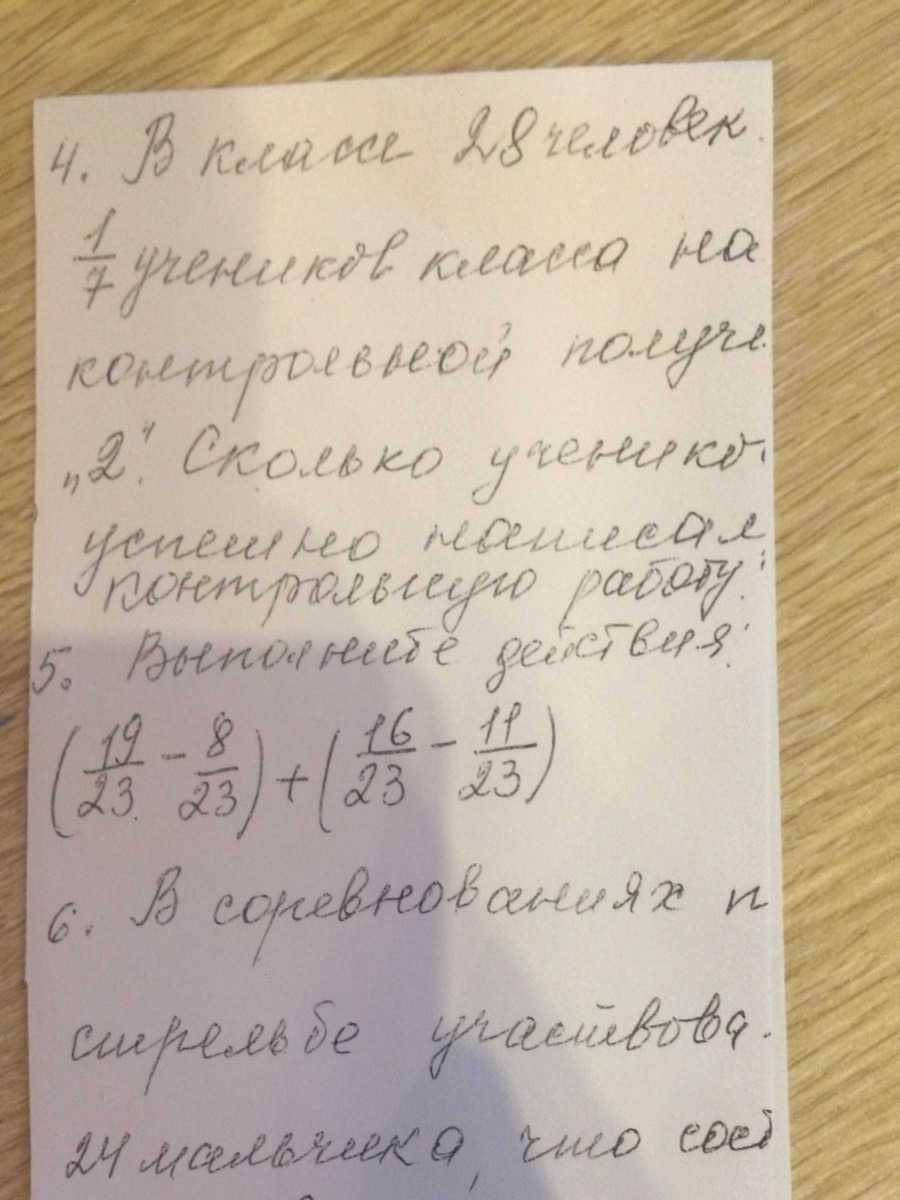 4. В классе 28 человек.
1/7 учеников класса на
контрольной получи
„2“. Сколько ученико
успешно написал
контрольную работу?
5. Выполните действия:
(19/23 - 8/23) + (16/23 - 11/23)
6. В соревнованиях п
стрельбе участвова
24 мальчика, что сост